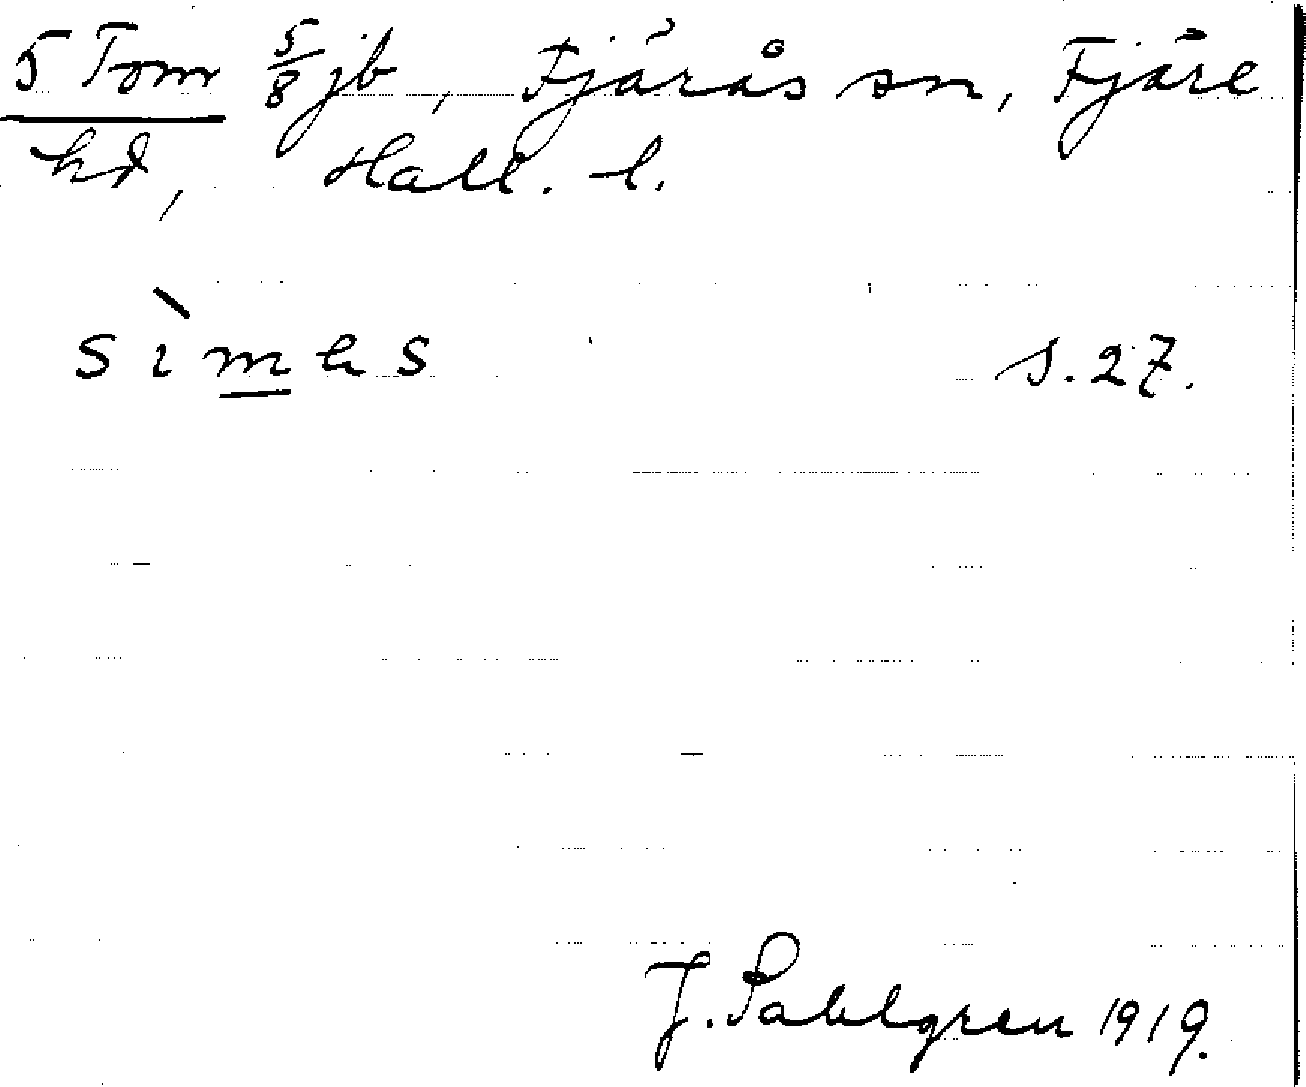 5 Tom 5/8 jb, Fjärås sn, Fjäre
hd, Hall. l.
sìmhs s. 27.
J. Sahlgren 1919.